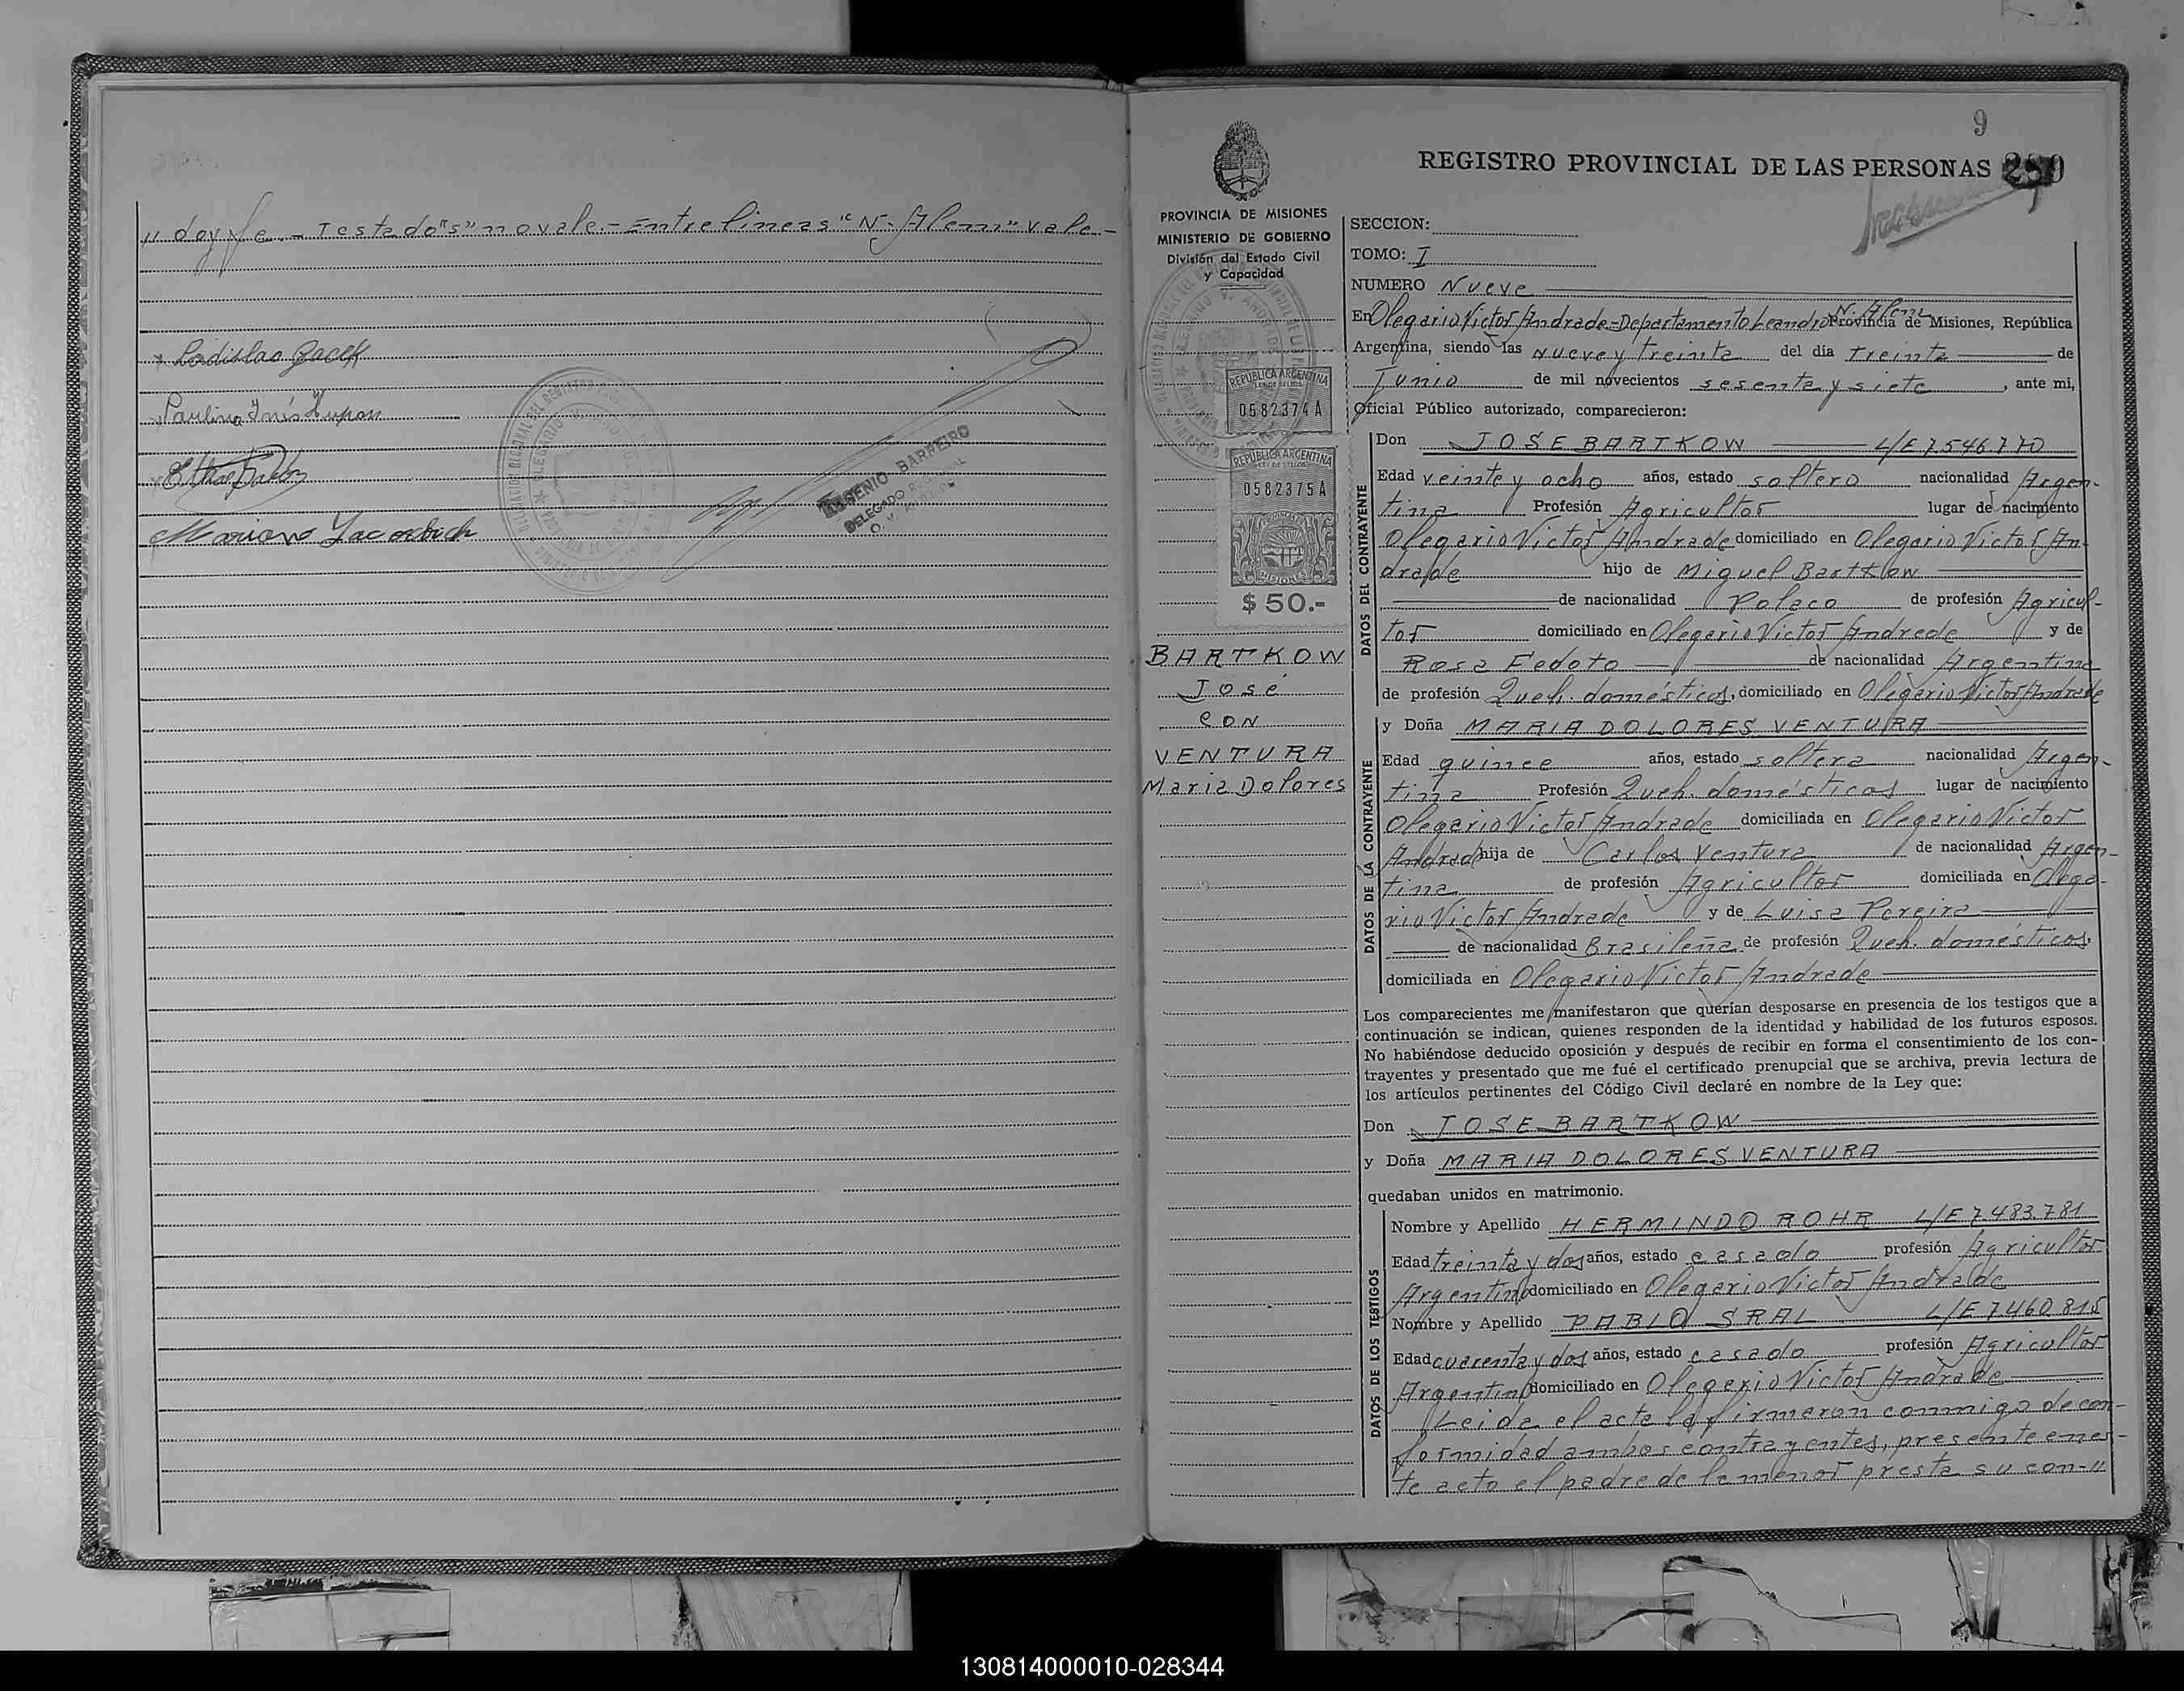 " doy fe.- Testado "s" no vale.- Entre lineas "N. Alem" vale.-
Ladislao Gacek
Paulina Inés Hupan
Mariano Jacorbich
EUGENIO BARREIRO
DELEGADO
9
REGISTRO PROVINCIAL DE LAS PERSONAS
PROVINCIA DE MISIONES
MINISTERIO DE GOBIERNO
División del Estado Civil
y Capacidad
REPUBLICA ARGENTINA
0582374A
REPUBLICA ARGENTINA
0582375A
MISIONES
$ 50.-
BARTKOW
José
CON
VENTURA
Maria Dolores
SECCION:
TOMO: I
NUMERO Nueve
N. Alem
En Olegario Victor Andrade-Departamento Leandro Provincia de Misiones, República
Argentina, siendo las nueve y treinta del día treinta de
Junio de mil novecientos sesenta y siete, ante mi,
Oficial Público autorizado, comparecieron:
DATOS DEL CONTRAYENTE
Don JOSE BARTKOW L/E 7.546.770
Edad veinte y ocho años, estado soltero nacionalidad Argen-
tina Profesión Agricultor lugar de nacimiento
Olegario Victor Andrade domiciliado en Olegario Victor An-
drade hijo de Miguel Bartkow
de nacionalidad Polaco de profesión Agricul-
tor domiciliado en Olegario Victor Andrade y de
Rosa Fedoto de nacionalidad Argentina
de profesión Queh. domésticos, domiciliado en Olegario Victor Andrade
DATOS DE LA CONTRAYENTE
y Doña MARIA DOLORES VENTURA
Edad quince años, estado soltera nacionalidad Argen-
tina Profesión Queh. domésticos lugar de nacimiento
Olegario Victor Andrade domiciliada en Olegario Victor
Andrade hija de Carlos Ventura de nacionalidad Argen-
tina de profesión Agricultor domiciliada en Olega-
rio Victor Andrade y de Luisa Pereira
de nacionalidad Brasileña de profesión Queh. domésticos,
domiciliada en Olegario Victor Andrade
Los comparecientes me manifestaron que querían desposarse en presencia de los testigos que a
continuación se indican, quienes responden de la identidad y habilidad de los futuros esposos.
No habiéndose deducido oposición y después de recibir en forma el consentimiento de los con-
trayentes y presentado que me fué el certificado prenupcial que se archiva, previa lectura de
los artículos pertinentes del Código Civil declaré en nombre de la Ley que:
Don JOSE BARTKOW
y Doña MARIA DOLORES VENTURA
quedaban unidos en matrimonio.
DATOS DE LOS TESTIGOS
Nombre y Apellido HERMINDO ROHR L/E 7.483.781
Edad treinta y dos años, estado casado profesión Agricultor
Argentino domiciliado en Olegario Victor Andrade
Nombre y Apellido PABLO SRAL L/E 7.460.815
Edad cuarenta y dos años, estado casado profesión Agricultor
Argentino domiciliado en Olegario Victor Andrade
Leida el acta la firmaron conmigo de con-
formidad ambos contrayentes, presente en es-
te acto el padre de la menor presta su con-"
130814000010-028344